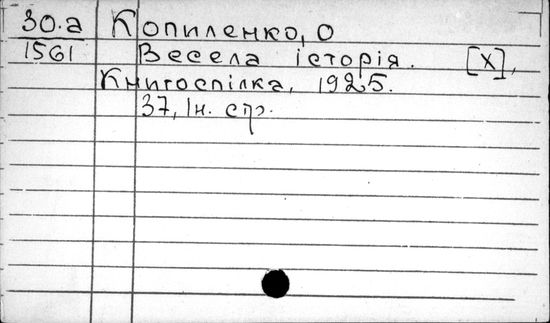 30.a Копиленко, О
1561 Весела історія. [Х],
Книгоспілка, 1925.
37, Ін. стр.